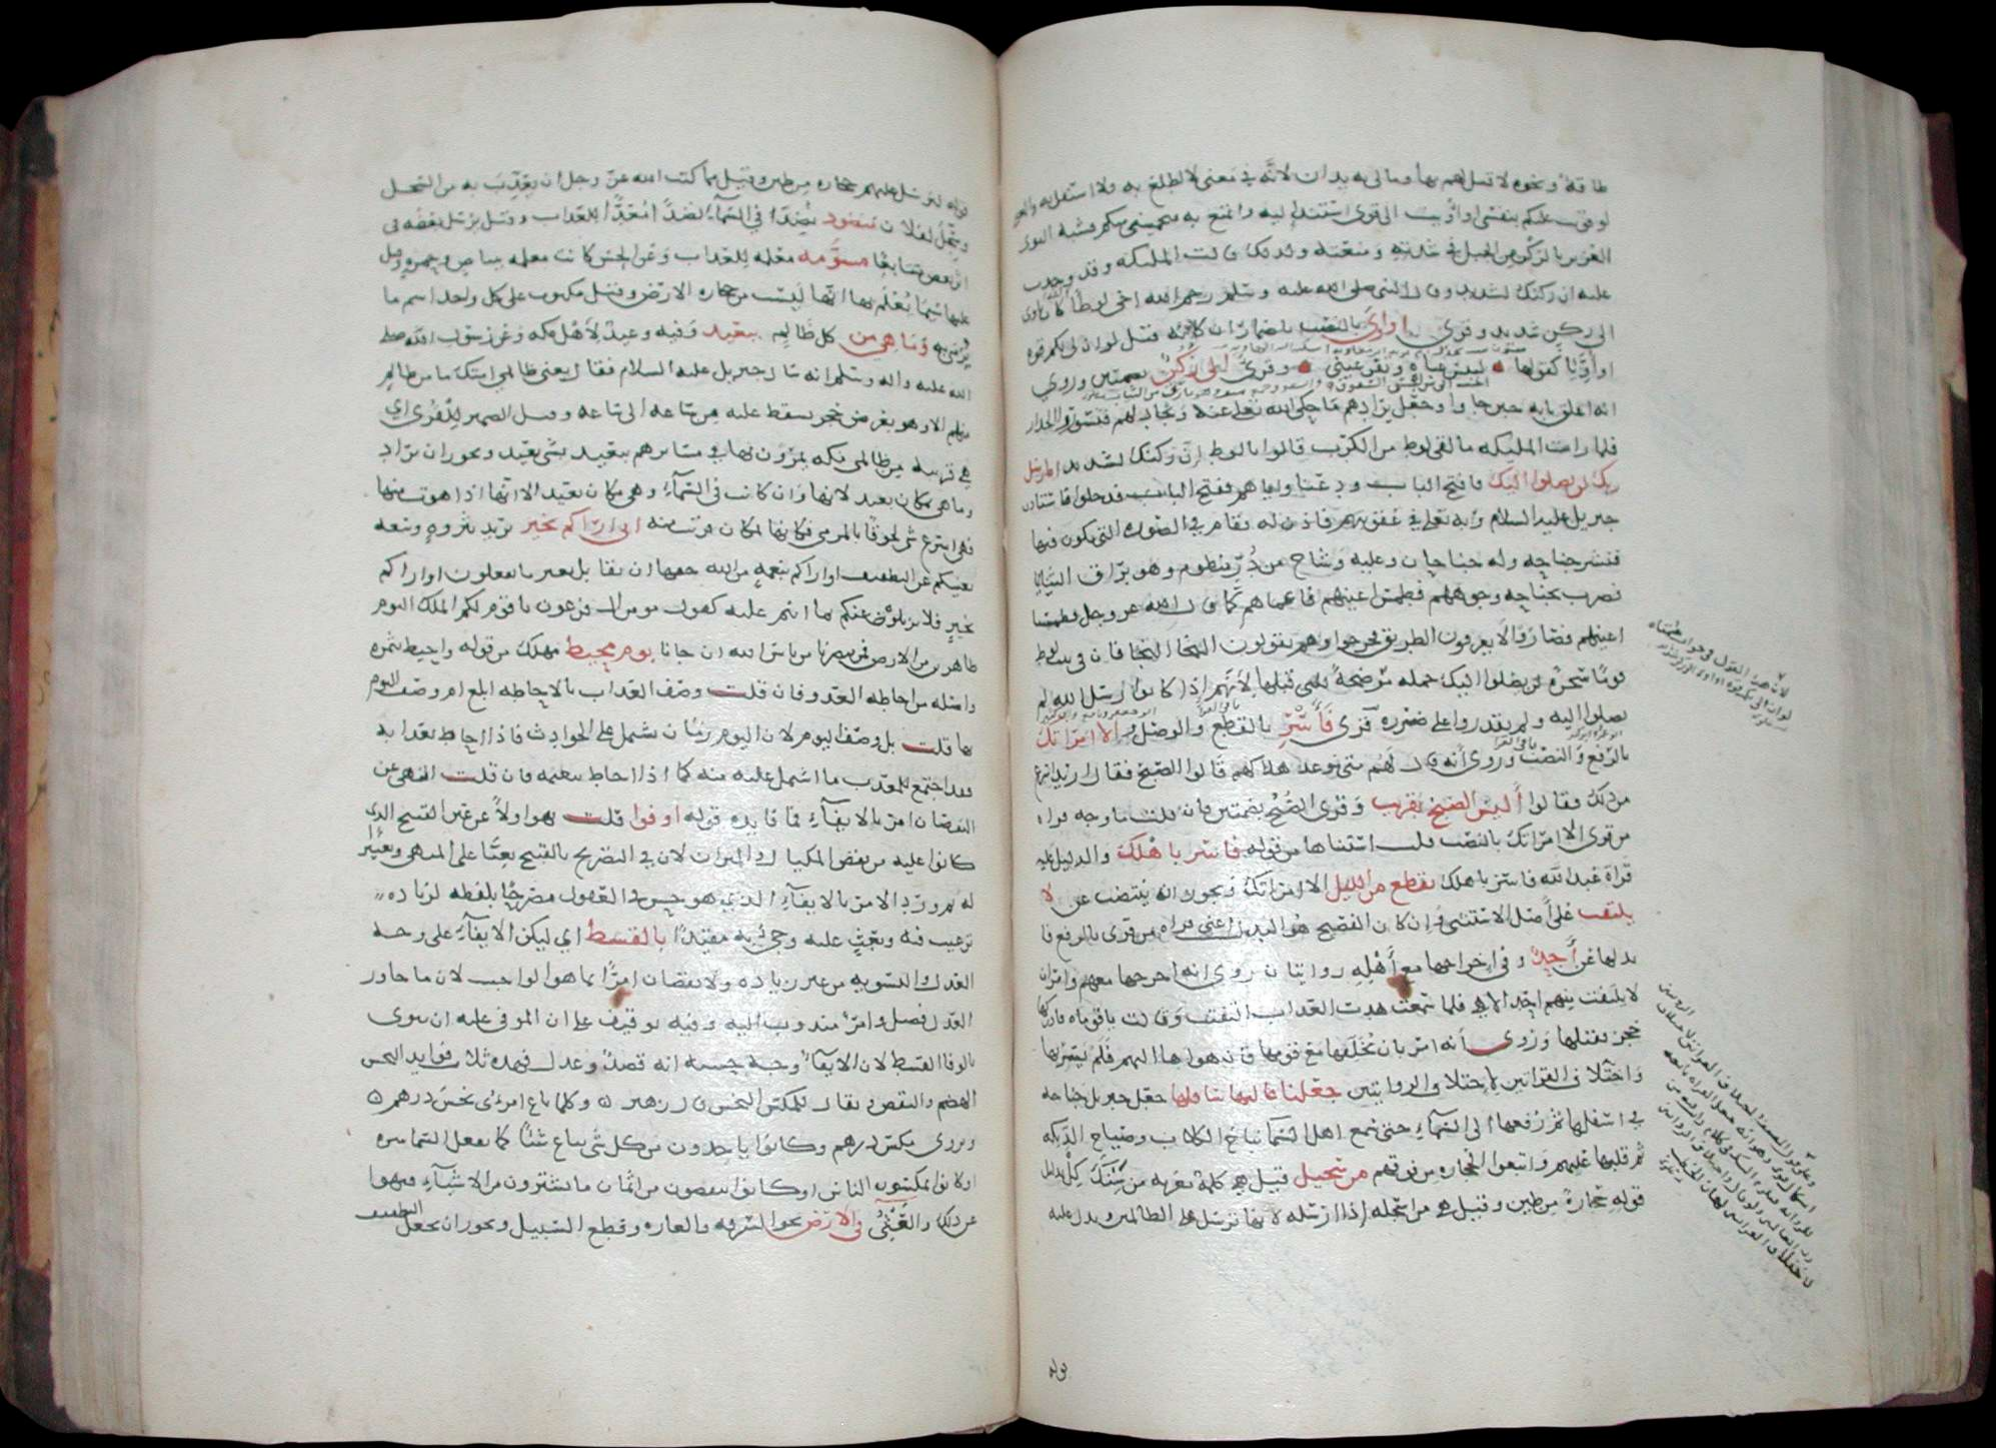 طاقة ونحوه لا قبل لهم بها وما لي به يدان لانه في معنى لا اطلع به ولا استقل به والمعنى
لو قويت عليكم بنفسي او اويت الى قوي استند اليه واتمنع به فيحميني منكم فشبه القوي
العزيز بالركن من الجبل في شدته ومنعته ولذلك قالت المليكة وقد وجدت
عليه ان ركنك لشديد وقال النبي صلى الله عليه وسلم رحم الله اخي لوطا كان ياوي
الى ركن شديد وقرى او اوي بالنصب باضمار ان كانه قيل لو ان لي بكم قوة
او اويا كقولها للبس عباه وتقر عيني وقرى الى ركن بضمتين وروي
انه اغلق بابه حين جاوا وجعل يرادهم ما حكى الله تعالى عنه ويجادلهم فتسوروا الجدار
فلما رات المليكة ما لقي لوط من الكرب قالوا يا لوط ان ركنك لشديد انا رسل
ربك لن يصلوا اليك فافتح الباب ودعنا واياهم ففتح الباب فدخلوا فاستاذن
جبريل عليه السلام ربه تعالى في عقوبتهم فاذن له فقام في الصورة التي يكون فيها
فنشر جناحه وله جناحان وعليه وشاح من در منظوم وهو براق الثنايا
فضرب بجناحه وجوههم فطمس اعينهم فاعماهم كما قال الله عز وجل فطمسنا
اعينهم فصاروا لا يعرفون الطريق فخرجوا وهم يقولون النجا النجا فان في بيت لوط
قوما سحرة لن يصلوا اليك جملة موضحة للتي قبلها لانهم اذا كانوا رسل الله لم
يصلوا اليه ولم يقدروا على ضرره قرى فاسر بالقطع والوصل والا امراتك
بالرفع والنصب وروى انه قال لهم متى موعد هلاكهم قالوا الصبح فقال اريد اسرع
من ذلك فقالوا أليس الصبح بقريب وقرى الصبح بضمتين فان قلت ما وجه قراءة
من قرى الا امراتك بالنصب قلت استثناها من قوله فاسر باهلك والدليل عليه
قراة عبد الله فاسر باهلك بقطع من الليل الا امراتك ويجوز ان ينتصب عن لا
يلتفت على اصل الاستثنى وان كان الفصيح هو البدل اعني قراة من قرى بالرفع فا
بدلها عن أحد وفي اخراجها مع أهله روايتان روي انه اخرجها معهم وامر ان
لا يلتفت منهم احد الا هي فلما سمعت هدت العذاب التفتت وقالت يا قوماه فادركها
حجر فقتلها وروى أنه امر بان يخلفها مع قومها فان هواها اليهم فلم يسر بها
واختلاف القراتين لاختلاف الروايتين جعلنا عاليها سافلها جعل جبريل جناحه
في اسفلها ثم رفعها الى السمآء حتى سمع اهل السمآ نباح الكلاب وصياح الديكة
ثم قلبها عليهم واتبعوا الحجارة من فوقهم من سجيل قيل هي كلمة معربة من سنك كل بدليل
قوله حجارة من طين وقيل هي من اسجله اذا ارسله لانها ترسل على الظالمين ويدل عليه
قوله
قوله لنرسل عليهم حجارة من طين وقيل مما كتب الله عز وجل ان يعذب به من السجل
وسجل لفلان منضود نضد في السمآء نضدا معدا للعذاب وقيل يرسل بعضه في
اثر بعض متتابعا مسومة معلمة للعذاب وعن الحسن كانت معلمة ببياض وحمرة وقيل
عليها سيما يعلم بها انها ليست من حجارة الارض وقيل مكتوب على كل واحد اسم ما
يرمى به وما هي من كل ظالم ببعيد وفيه وعيد لاهل مكة وعن رسول الله صلى
الله عليه واله وسلم انه سال جبريل عليه السلام فقال يعني ظالمي امتك ما من ظالم
منهم الا وهو بعرض حجر يسقط عليه من ساعة الى ساعة وقيل الضمير للقرى اي
هي قريبة من ظالمي مكة يمرون بها في مسايرهم ببعيد بشي بعيد ويجوز ان يراد
وما هي بمكان بعيد لانها وان كانت في السمآء وهي مكان بعيد الا انها اذا هوت منها
فهي اسرع شي لحوقا بالمرمي فكانها بمكان قريب منه اني اراكم بخير يريد بثروة وسعة
تغنيكم عن التطفيف او اراكم بنعمة من الله حقها ان تقابل بغير ما تفعلون او اراكم
بخير فلا تزيلوه عنكم بما انتم عليه كقول مومن ال فرعون يا قوم لكم الملك اليوم
ظاهرين في الارض فمن ينصرنا من باس الله ان جانا يوم محيط مهلك من قوله واحيط بثمره
واصله من احاطة العدو فان قلت وصف العذاب بالاحاطة ابلغ ام وصف اليوم
بها قلت بل وصف اليوم لان اليوم زمان يشتمل على الحوادث فاذا احاط بعذابه
فقد اجتمع للمعذب ما اشتمل عليه منه كما اذا احاط بنعيمه فان قلت النهي عن
النقصان امر بالايفآء فما فايدة قوله اوفوا قلت نهوا اولا عن عين القبيح الذي
كانوا عليه من نقص المكيال والميزان لان في التصريح بالقبيح نعيا على المنهي وتعييرا
له ثم ورد الامر بالايفآء الذي هو حسن في العقول مصرحا بلفظه لزيادة
ترغيب فيه وبعث عليه وجي به مقيدا بالقسط اي ليكن الايفآء على وجه
العدل والتسوية من غير زيادة ولا نقصان امرا بما هو الواجب لان ما جاوز
العدل فضل وامر مندوب اليه وفيه توقيف على ان الموفي عليه ان ينوي
بالوفا القسط لان الايفآء وجه حسنه انه قسط وعدل فهذه ثلاث فوايد البخس
الهضم والنقص ويقال للمكس البخس قال زهير وكل ما باع امرؤ بخس درهم
وروي مكس درهم وكانوا ياخذون من كل شي يباع شيئا كما تفعل السماسرة
او كانوا يمكسون الناس او كانوا ينقصون من اثمان ما يشترون من الاشيآء فنهوا
عن ذلك والعثي في الارض نحو السرقة والغارة وقطع السبيل ويجوز ان يجعل التطفيف